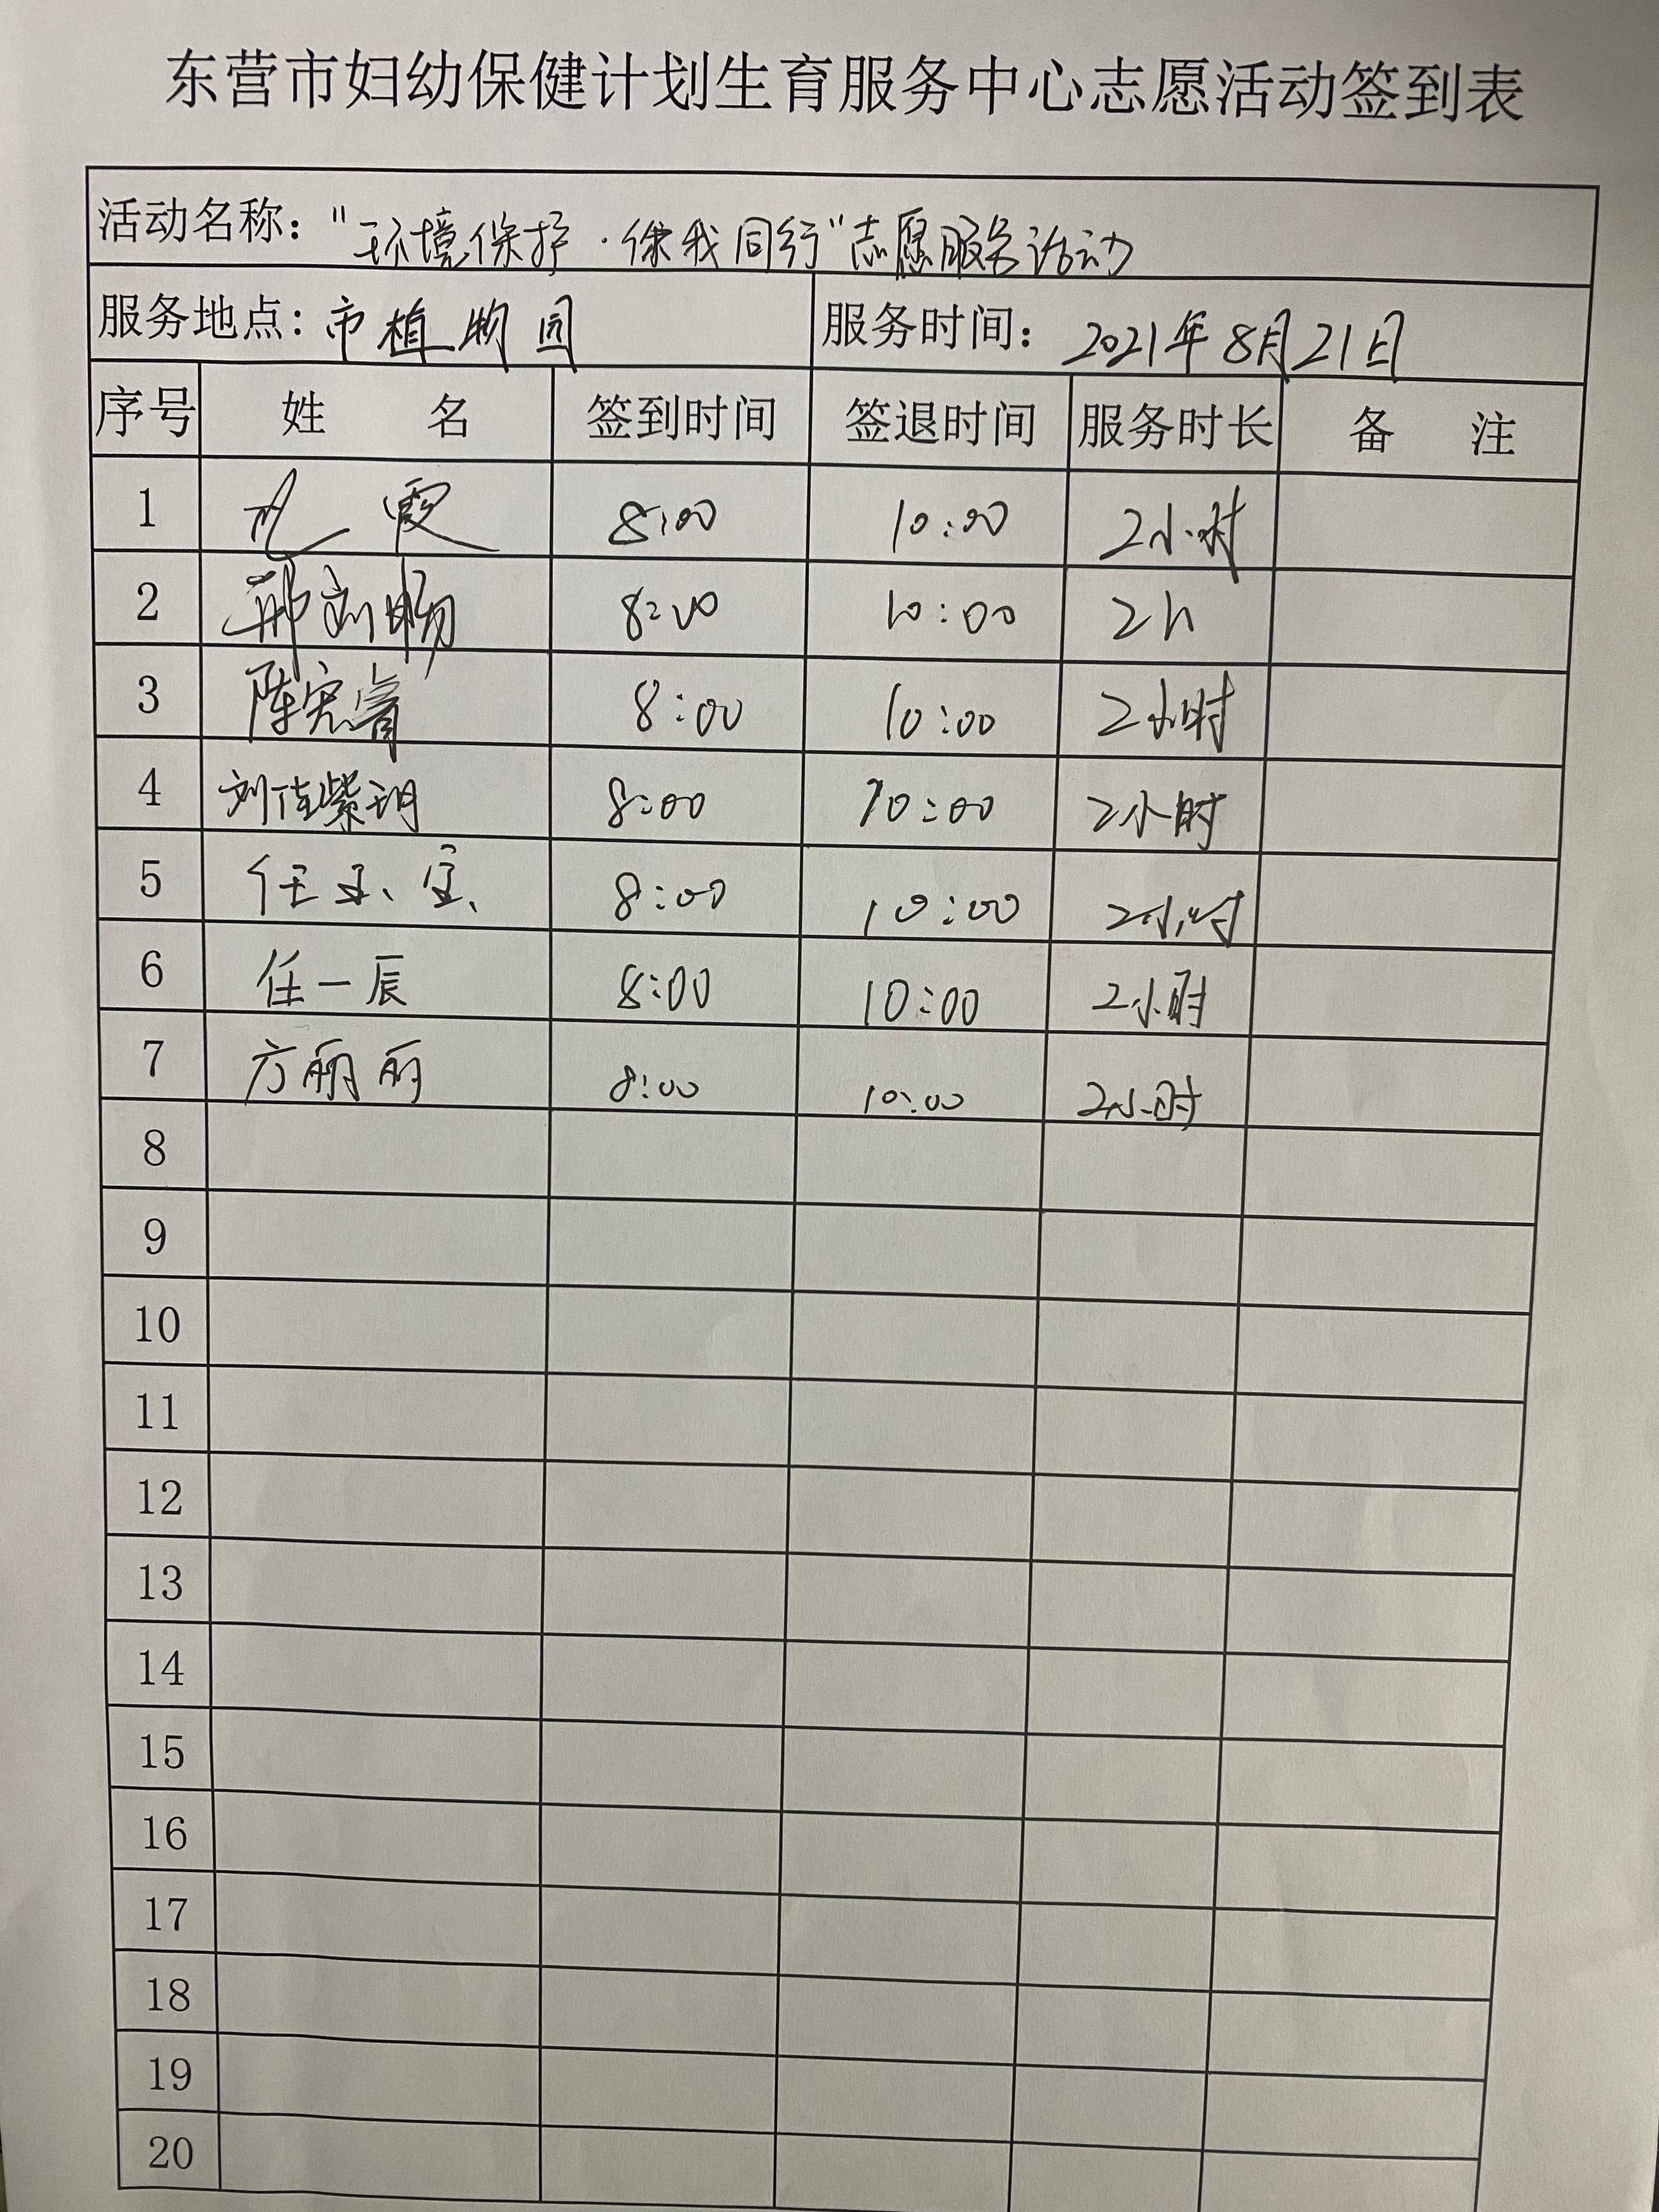 东营市妇幼保健计划生育服务中心志愿活动签到表
活动名称："环境保护·你我同行"志愿服务活动
服务地点：市植物园 服务时间：2021年8月21日
序号 姓 名 签到时间 签退时间 服务时长 备 注
1 霞 8:00 10:00 2小时
2 邢刘畅 8:00 10:00 2h
3 陈宪睿 8:00 10:00 2小时
4 刘佳紫玥 8:00 10:00 2小时
5 任玉宝 8:00 10:00 2小时
6 任一辰 8:00 10:00 2小时
7 方丽丽 8:00 10:00 2小时
8
9
10
11
12
13
14
15
16
17
18
19
20